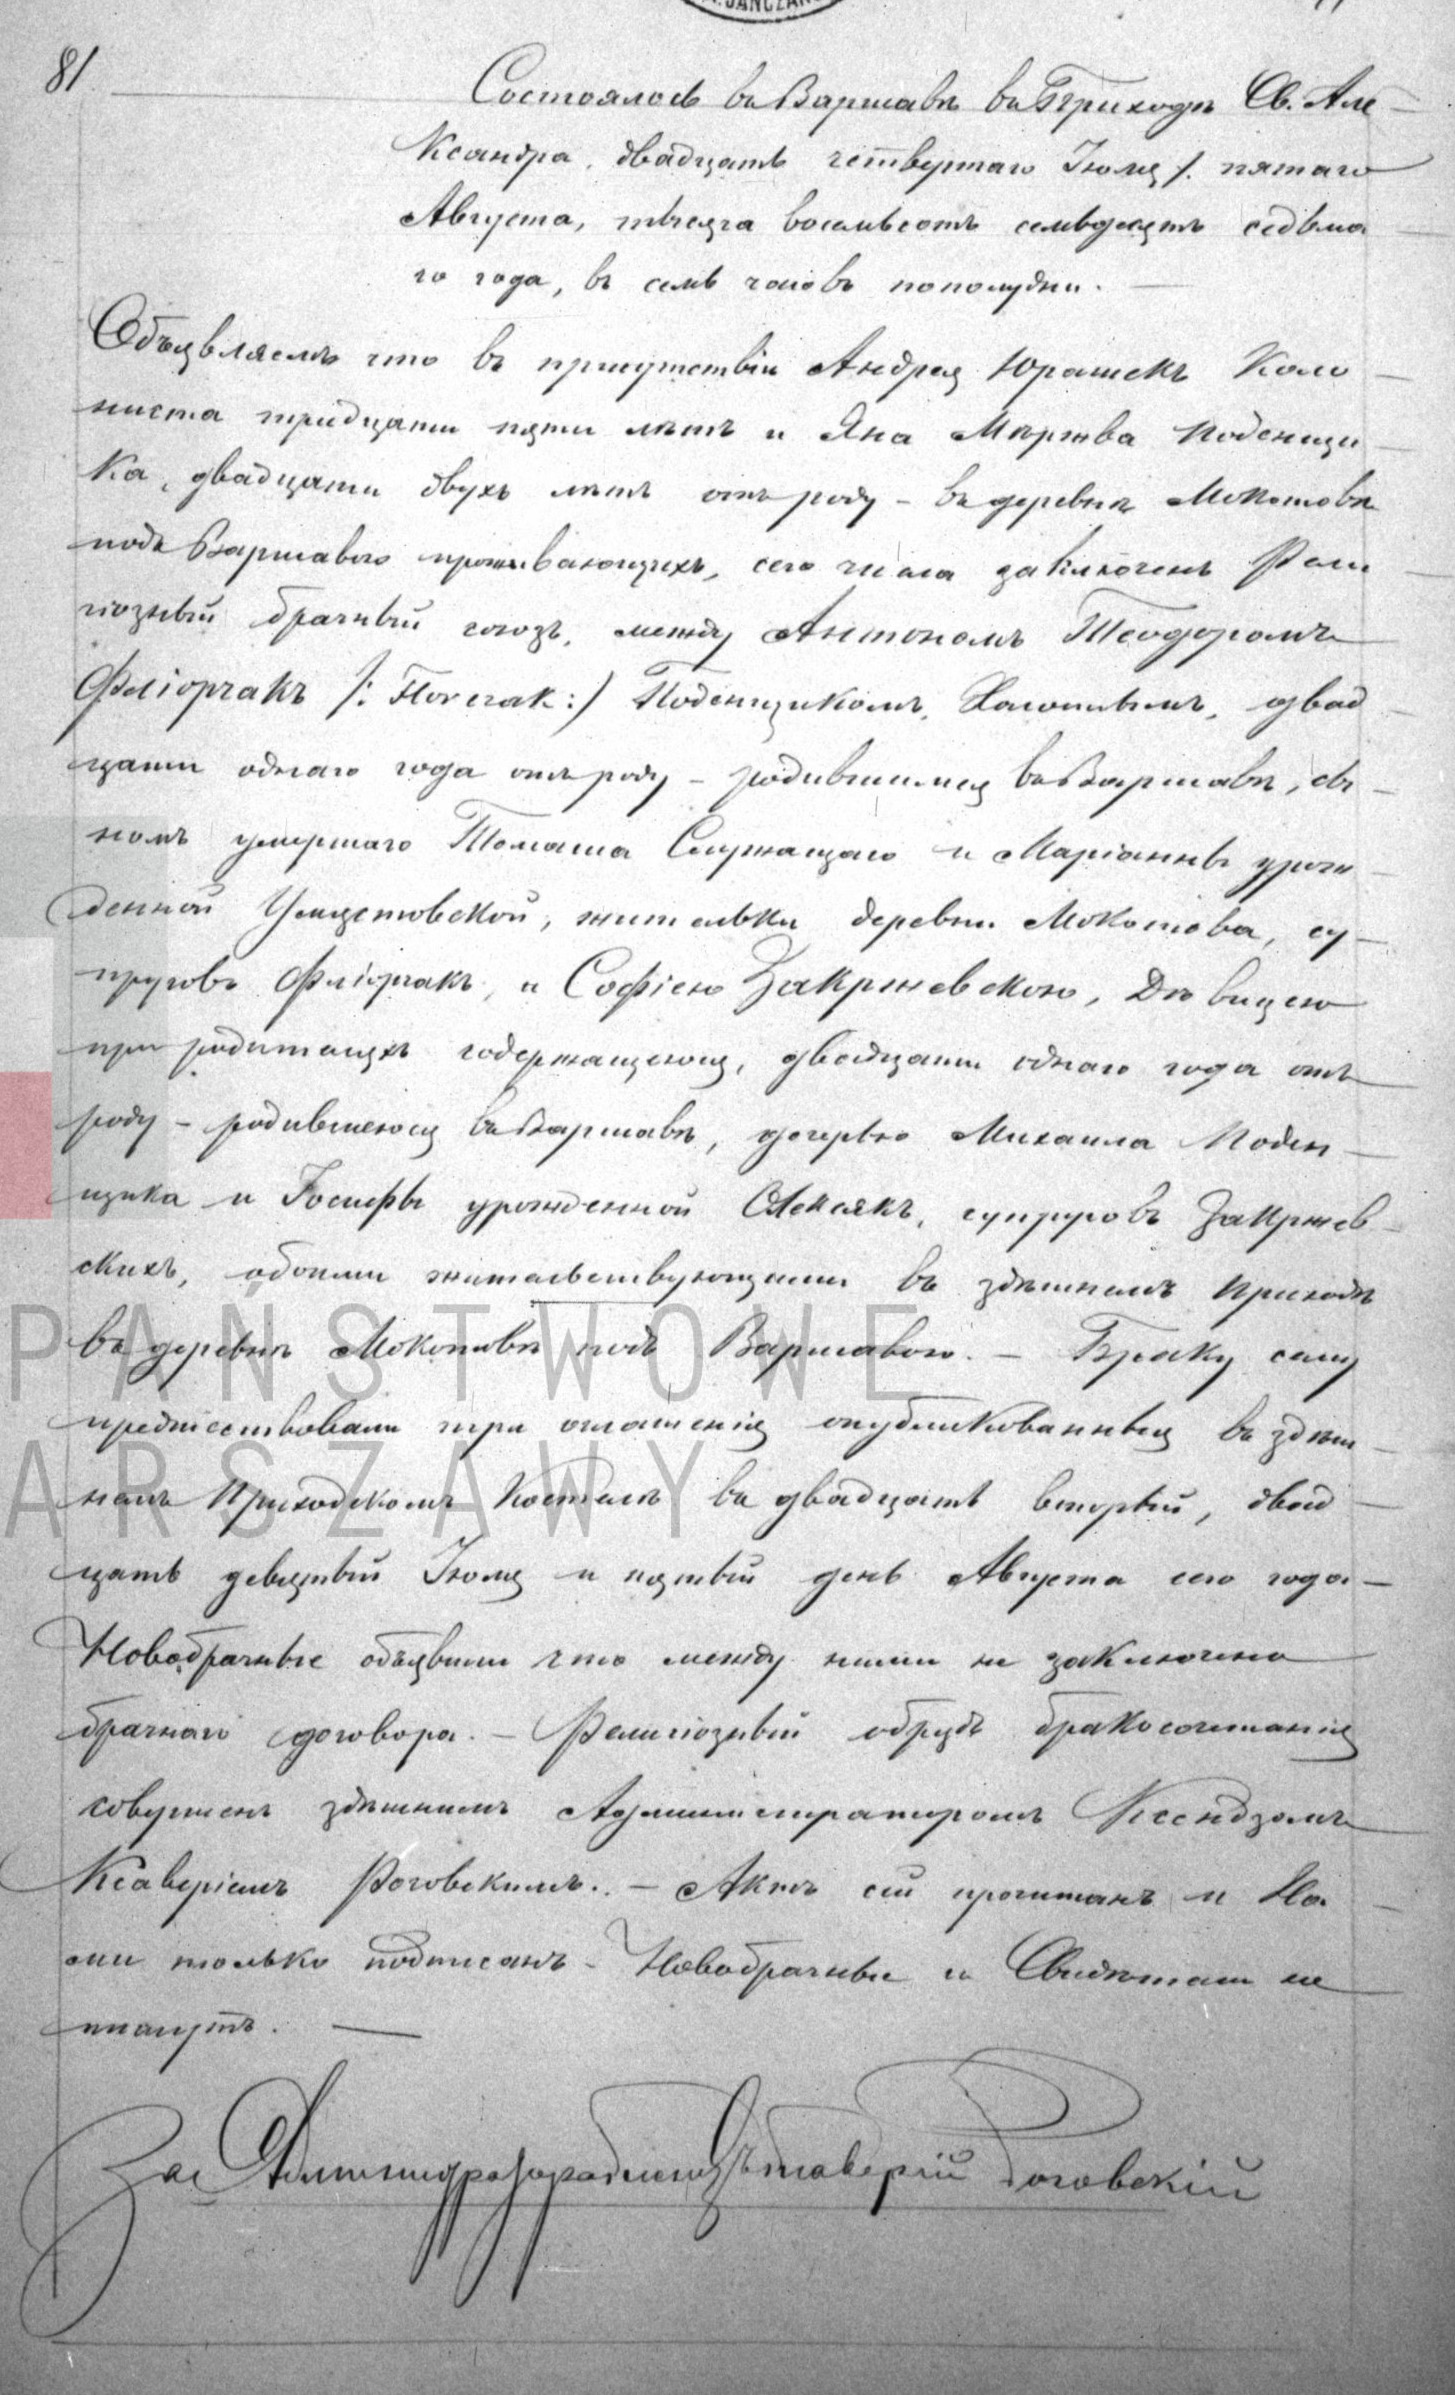 JANCZAR
81
Состоялось въ Варшавѣ въ Приходѣ Св. Але-
ксандра, двадцать четвертаго Іюля /. пятаго
Августа, тысяча восемьсотъ семьдесятъ седьма-
го года, въ семь часовъ пополудни. —
Объявляемъ что въ присутствіи Андрея Юрашекъ Коло-
ниста тридцати пяти лѣтъ и Яна Мержва Поденщи-
ка, двадцати двухъ лѣтъ отъ роду – въ деревнѣ Мокотовѣ
подъ Варшавою проживающихъ, сего числа заключенъ Рели-
гіозный брачный союзъ, между Антономъ Теодоромъ
Фліорчакъ /: Florczak :/ Поденщикомъ, Холостымъ, двад-
цати однаго года отъ роду – родившимся въ Варшавѣ, сы-
номъ умершаго Томаша Служащаго и Маріанны урож-
денной, жительки деревни Мокотова, су-
пруговъ Фліорчакъ, и Софіею Закржевскою, Дѣвицею
при родителяхъ содержащеюся, двадцати однаго года отъ
роду – родившеюся въ Варшавѣ, дочерью Михаила Поден-
щика и Іосифы урожденной Олексякъ, супруговъ Закржев-
скихъ, обоими жительствующими въ здѣшнемъ приходѣ
въ деревнѣ Мокотовѣ подъ Варшавою. – Браку сему
предшествовали три оглашенія опубликованныя въ здѣш-
немъ Приходскомъ Костелѣ въ двадцать вторый, двад-
цать девятый Іюля и пятый день Августа сего года –
Новобрачные объявили что между ними не заключено
брачнаго договора. – Религіозный обрядъ бракосочетанія
совершенъ здѣшнимъ Администраторомъ Ксендзомъ
Ксаверіемъ Роговскимъ. – Актъ сей прочитанъ и На-
ми только подписанъ – Новобрачные и Свидѣтели не
пишутъ. —
Ксаверій Роговскій
PAŃSTWOWE
ARSZAWY